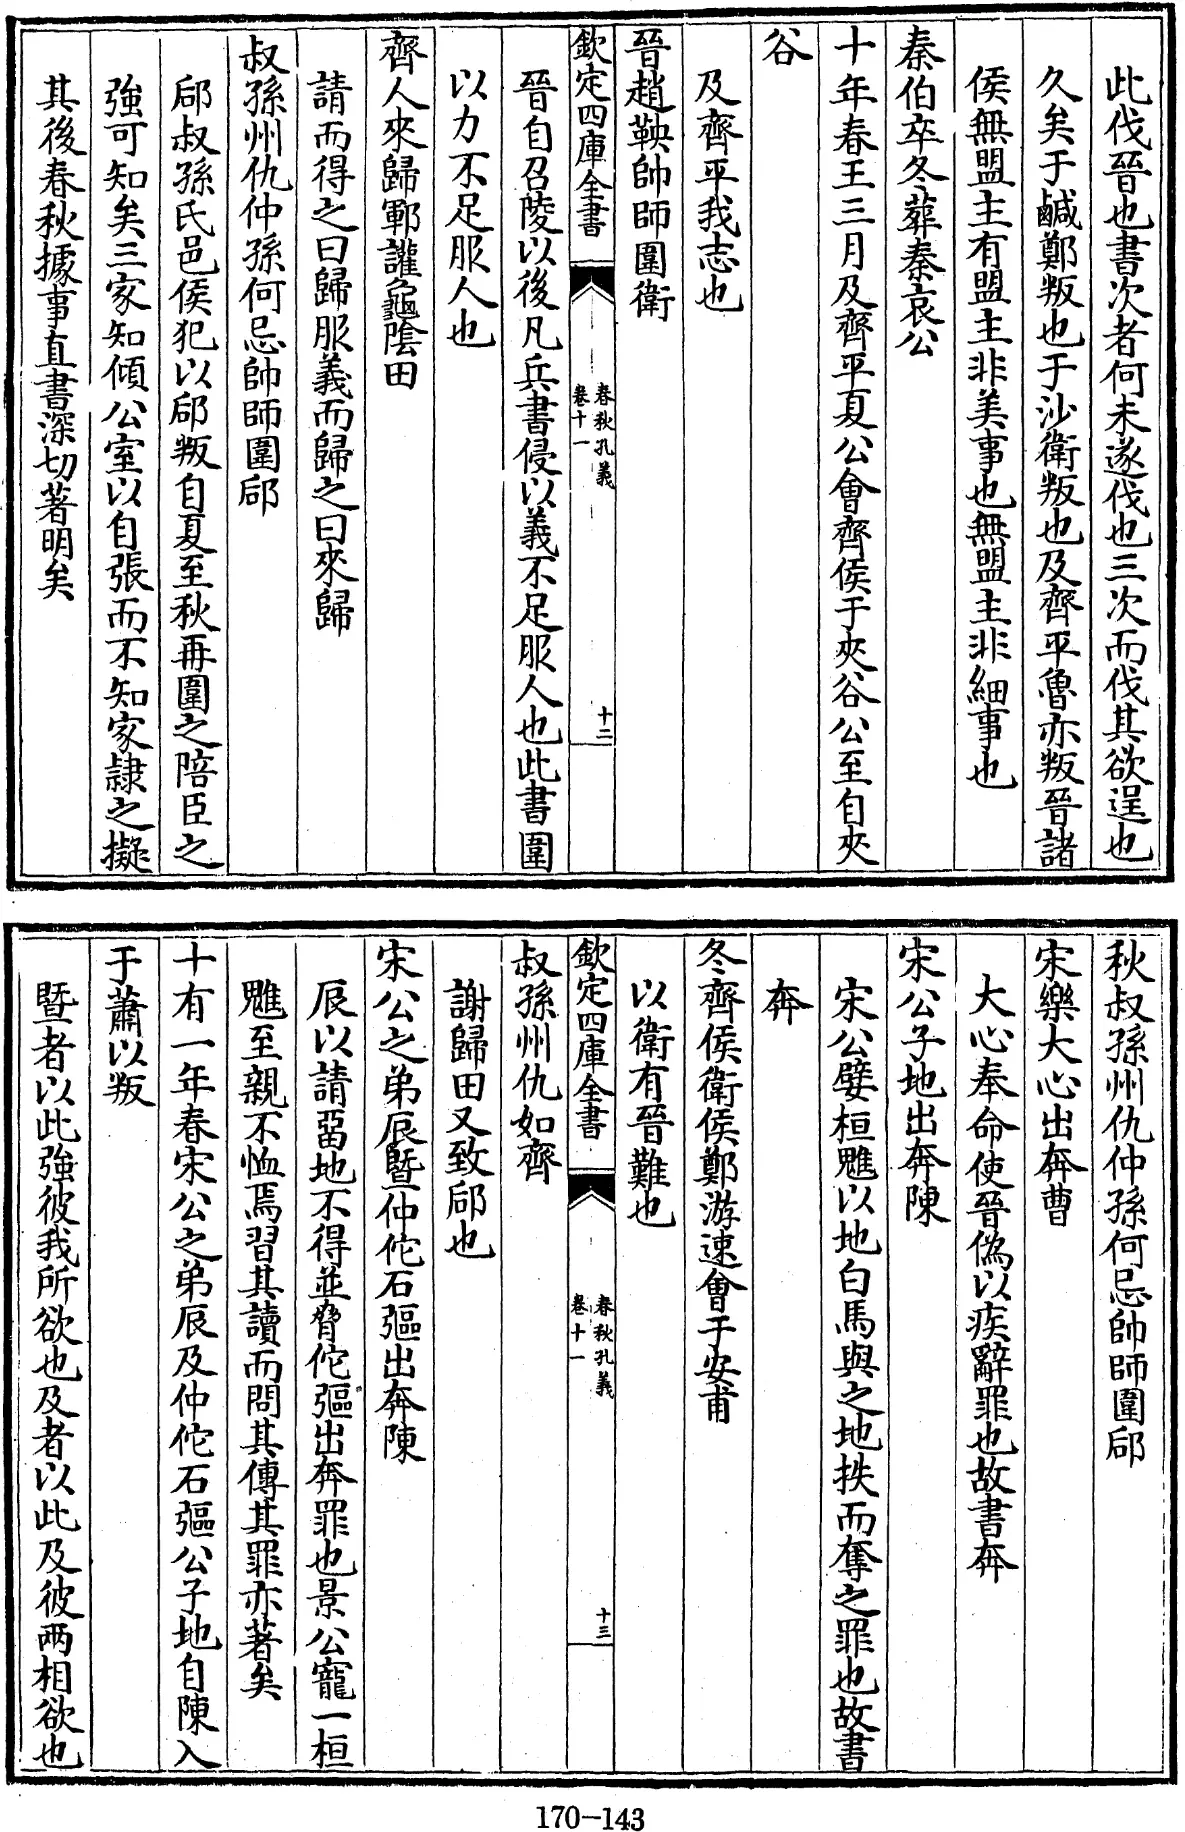 此伐晉也書次者何未遂伐也三次而伐其欲逞也
久矣于鹹鄭叛也于沙衛叛也及齊平魯亦叛晉諸
侯無盟主有盟主非美事也無盟主非細事也
秦伯卒冬葬秦哀公
十年春王三月及齊平夏公會齊侯于夾谷公至自夾
谷
及齊平我志也
晉趙鞅帥師圍衛
欽定四庫全書
春秋孔義
卷十一
十二
晉自召陵以後凡兵書侵以義不足服人也此書圍
以力不足服人也
齊人來歸鄆讙龜隂田
請而得之曰歸服義而歸之曰來歸
叔孫州仇仲孫何忌帥師圍郈
郈叔孫氏邑侯犯以郈叛自夏至秋再圍之陪臣之
強可知矣三家知傾公室以自張而不知家隷之擬
其後春秋據事直書深切著明矣
秋叔孫州仇仲孫何忌帥師圍郈
宋樂大心出奔曹
大心奉命使晉偽以疾辭罪也故書奔
宋公子地出奔陳
宋公嬖桓魋以地白馬與之地抶而奪之罪也故書
奔
冬齊侯衛侯鄭游速會于安甫
以衛有晉難也
欽定四庫全書
春秋孔義
卷十一
十三
叔孫州仇如齊
謝歸田又致郈也
宋公之弟辰暨仲佗石彄出奔陳
辰以請畱地不得並脅佗彄出奔罪也景公寵一桓
魋至親不恤焉習其讀而問其傳其罪亦著矣
十有一年春宋公之弟辰及仲佗石彄公子地自陳入
于蕭以叛
暨者以此強彼我所欲也及者以此及彼兩相欲也
170-143